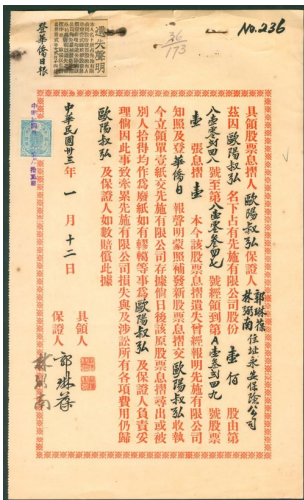 No.236
36
173
遺失聲明
登華僑日報
具領股票息摺人歐陽叔弘保證人 郭琳葆 林弼南 住址永安保險公司
茲因歐陽叔弘名下占有先施有限公司股份壹佰股由第
號經領到第A壹叁肆九號股票
壹張息摺壹本今該股票息摺遺失曾經報明先施有限公司
知照及登華僑日報聲明蒙照補發新股票息摺交歐陽叔弘收執
今立領單壹紙交先施有限公司存據倘日後該原股票息摺尋出或被
別人拾得均作為廢紙如有轇轕等事為歐陽叔弘及保證人負責妥
理倘因此事致牽累先施有限公司損失與及涉訟所有各項費用仍歸
歐陽叔弘及保證人如數賠償此據
具領人
保證人 郭琳葆
林弼南
中華民國卅三年一月十二日